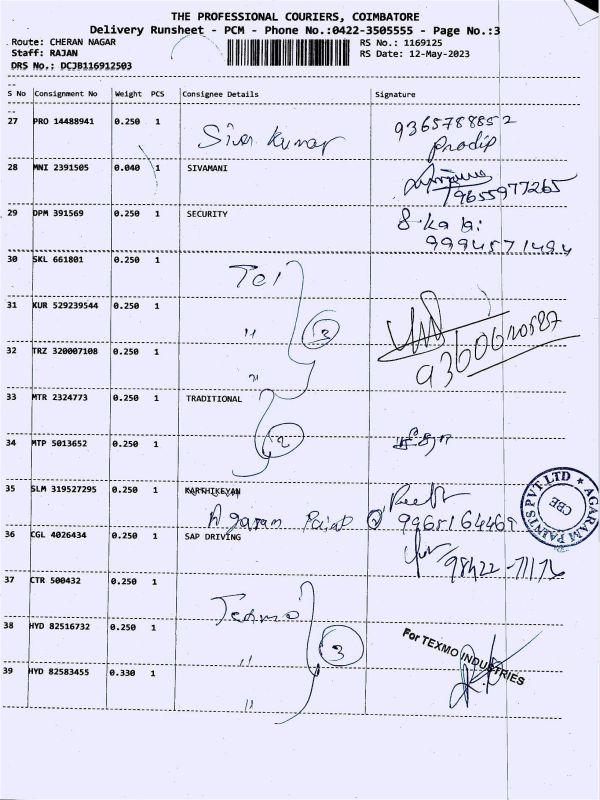 THE PROFESSIONAL COURIERS, COIMBATORE
Delivery Runsheet - PCM - Phone No.:0422-3505555 - Page No.:3
Route: CHERAN NAGAR RS No.: 1169125
Staff: RAJAN RS Date: 12-May-2023
DRS No.: DCJB116912503
S No Consignment No Weight PCS Consignee Details Signature
27 PRO 14488941 0.250 1 Siva kumar 9365788852
Pradip
28 MNI 2391505 0.040 1 SIVAMANI
9655977265
29 DPM 391569 0.250 1 SECURITY
9994571494
30 SKL 661801 0.250 1 Tel
31 KUR 529239544 0.250 1 " 3
32 TRZ 320007108 0.250 1 " 9360610587
33 MTR 2324773 0.250 1 TRADITIONAL
34 MTP 5013652 0.250 1 2
35 SLM 319527295 0.250 1 KARTHIKEYAN
Agaram Paint 9965164469
AGARAM PAINTS PVT LTD
CBE
36 CGL 4026434 0.250 1 SAP DRIVING
98422-71176
37 CTR 500432 0.250 1 Texmo
38 HYD 82516732 0.250 1 " 3
For TEXMO INDUSTRIES
39 HYD 82583455 0.330 1 "